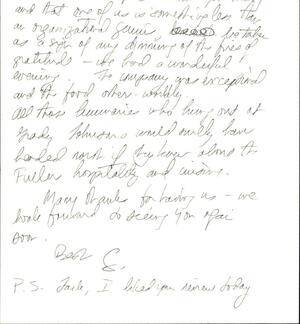 and that one of us is something less than
an organizational genius to take
as a sign of any dimming of the fires of
gratitude - we had a wonderful
evening. The company was exceptional
and the food other-worldly
All those luminaries who hung out at
Grady Johnsons would only have
headed north if they knew about the
Fuller hospitality and cuisine.
Many thanks for having us - we
look forward to seeing you again
soon.
Best
P.S. I liked your review today